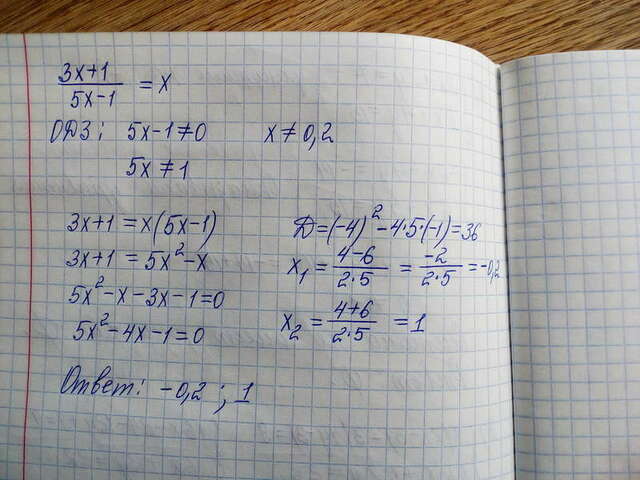 3x+1 / 5x-1 = x
ОДЗ: 5x-1≠0 x≠0,2
5x≠1
3x+1=x(5x-1)
3x+1=5x²-x
5x²-x-3x-1=0
5x²-4x-1=0
D=(-4)²-4·5·(-1)=36
x₁ = 4-6 / 2·5 = -2 / 2·5 = -0,2
x₂ = 4+6 / 2·5 = 1
Ответ: -0,2 ; 1